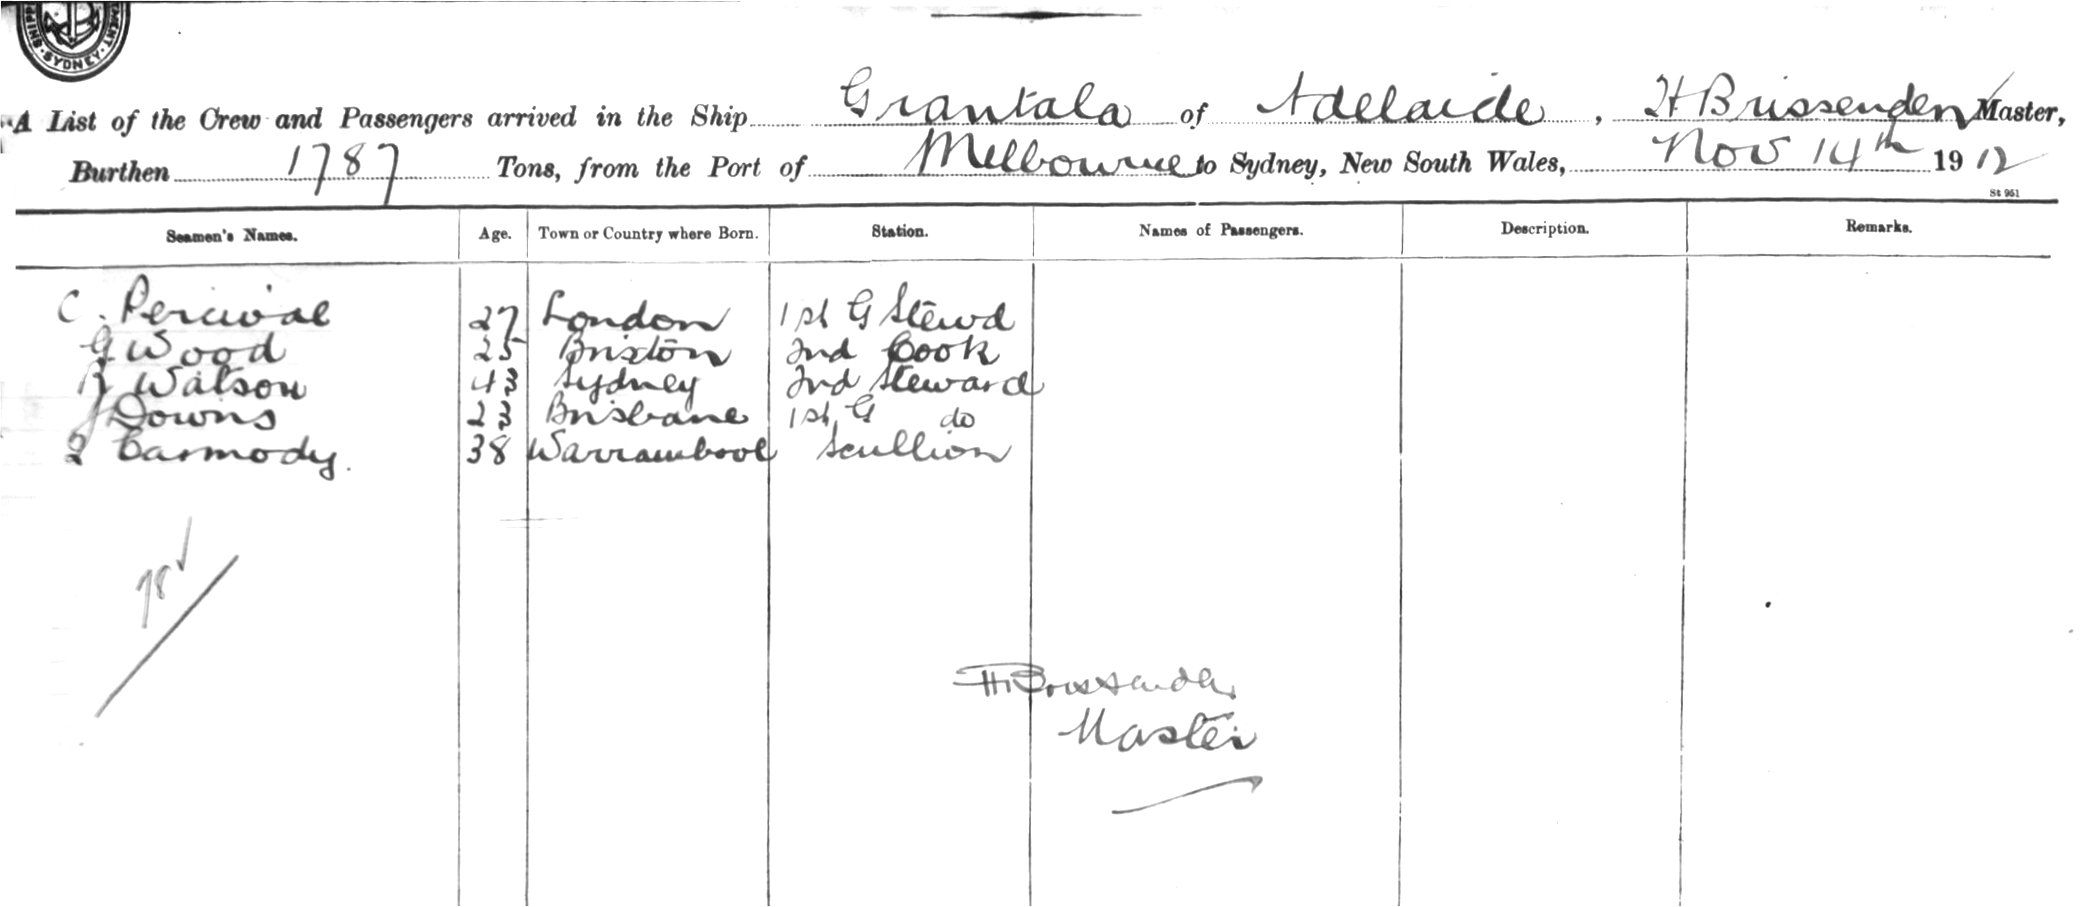 SHIPP MENT
· SYDNEY ·
A List of the Crew and Passengers arrived in the Ship Grantala of Adelaide, H Brissenden Master,
Burthen 1787 Tons, from the Port of Melbourne to Sydney, New South Wales, Nov 14th 1912
St 961
Seamen's Names. Age. Town or Country where Born. Station. Names of Passengers. Description. Remarks.
C. Percival 27 London 1st G Stewd
G Wood 25 Brixton 2nd Cook
R Watson 43 Sydney 2nd Steward
J Downs 23 Brisbane 1st G do
Carmody. 38 Warrambool Scullion
78
H Brissenden
Master